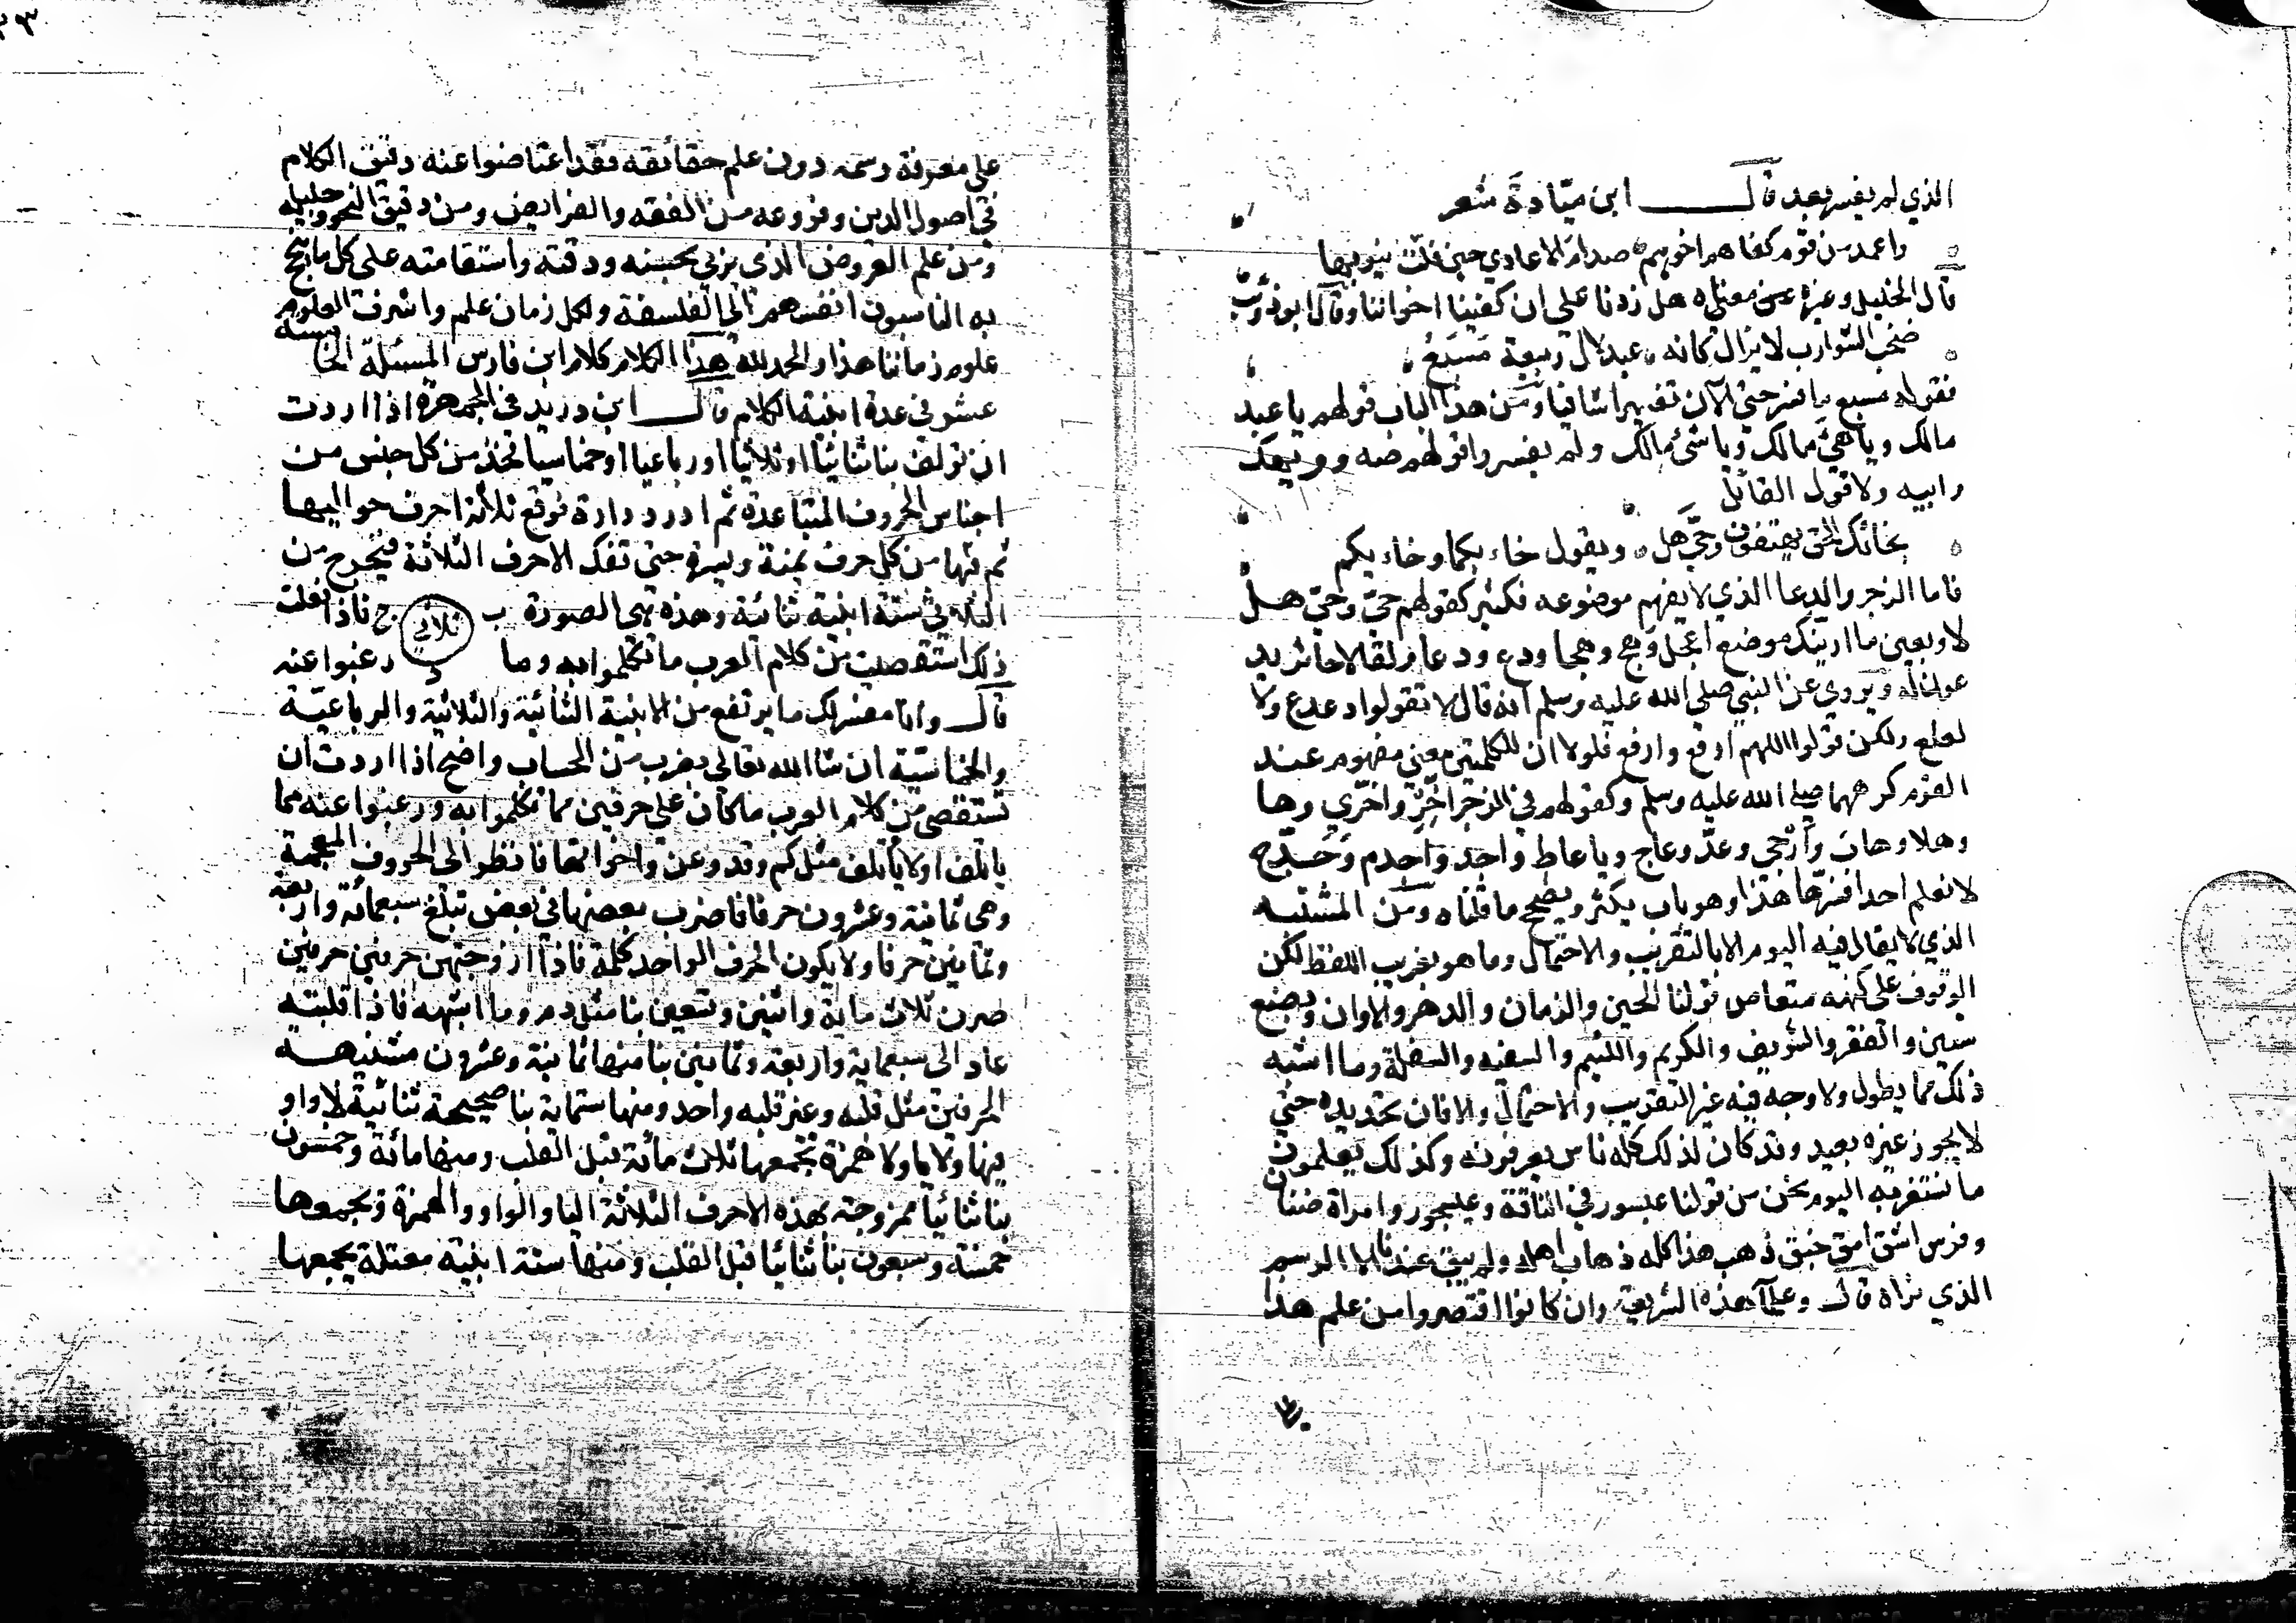 الذي لم يفسر بعد قال ابن ميّادة شعر
واعمد من قوم كفاهم اخوهم صدام الاعادي حين فلت نيوبها
قال الخليل وغيره عن معناه هل زدنا على ان كفينا اخواننا وقال ابو ذؤيب
صخب الشوارب لا يزال كانه عبد لال ربيعة مسبع
فقوله مسبع ما فسر حتى الآن تفسيرا شافيا ومن هذا الباب قولهم يا عيد
مالك ويا هئ مالك ويا شئ مالك ولم يفسروا قولهم صه وويهك
وابيه ولا قول القائل
بخائبك الحق يهتفون وحيّ هل ويقول خاء بكما وخاء بكم
فاما الزجر والدعا الذي لا يفهم موضوعه فكثير كقولهم حيّ وحيّ هل
لا وبعين ما ارينك موضع اعجل وهج وهجا ودع ودعا ولعا للعاثر يد
عون له ويروى عن النبي صلى الله عليه وسلم انه قال لا تقولوا دعدع ولا
لعلع ولكن قولوا اللهم ارفع وارفع فلولا ان للكلمتين معنى مفهوم عند
القوم كرههما صلى الله عليه وسلم وكقولهم في الزجر اخّر واخّري وها
وهلا وهاب وارحبي وعدّ وعاج ويا عاط واجد واجدم وحدّج
لا نعلم احدا فسّرها هذا وهو باب يكثر ويصحح ما قلناه ومن المشتبه
الذي لا يقال فيه اليوم الا بالتقريب والاحتمال وما هو بغريب اللفظ لكن
الوقوف على كنهه متعاص قولنا الحين والزمان والدهر والاوان وبضع
سنين والفقر والشريف والكريم واللئيم والسفيه والسفلة وما اشبه
ذلك مما يطول ولا وجه فيه غير التقريب والاحتمال والا فان تحديده حتى
لا يجوز غيره بعيد وقد كان لذلك كله ناس يعرفونه وكذلك يعلمون
ما نستغربه اليوم نحن من قولنا عبسور في الناقة وعيسجور وامراة ضناك
وفرس اشق امق خبق ذهب هذا كله ذهاب اهله ولم يبق عندنا الا الرسم
الذي نراه قال وعلماء هذه الشريعة وان كانوا اقتصروا من علم هذا
على معرفة رسمه دون علم حقائقه فقد اعتاضوا عنه دقيق الكلام
في اصول الدين وفروعه من الفقه والفرايض ومن دقيق النحو وجليله
ومن علم العروض الذي يربي بحسنه ودقته واستقامته على كل ما يبجح
به الناسبون انفسهم الى الفلسفة ولكل زمان علم واشرف العلوم
علوم زماننا هذا والحمد لله هذا الكلام كلام ابن فارس المسئلة الخامسة
عشر في عدة ابنية الكلام قال ابن دريد في الجمهرة اذا اردت
ان تولف بنا ثنائيا او ثلاثيا او رباعيا او خماسيا فخذ من كل جنس من
اجناس الحروف المتباعدة ثم ادر دارة فوقع ثلاثة احرف حواليها
ثم فكها من كل حرف يمنة ويسرة حتى تفك الاحرف الثلاثة فيخرج من
الثلاثي ستة ابنية ثنائية وهذه هي الصورة ب ثلاثي ج فاذا فعلت
ذلك استقصيت من كلام العرب ما تكلموا به وما د رغبوا عنه
قال وانا مفسر لك ما يرتفع من الابنية الثنائية والثلاثية والرباعيّة
والخماسيّة ان شا الله تعالى بضرب من الحساب واضح اذا اردت ان
تستقصي من كلام العرب ما كان على حرفين مما تكلموا به ورغبوا عنه مما
ياتلف او لا ياتلف مثل كم وقد وعن واخواتها فانظر الى الحروف المعجمة
وهى ثمانية وعشرون حرفا فاضرب بعضها في بعض تبلغ سبعمائة واربعة
وثمانين حرفا ولا يكون الحرف الواحد كلمة فاذا ازوجتهن حرفين حرفين
صرن ثلاث ماية واثنين وتسعين بنا مثل دم وما اشبهه فاذا قلبته
عاد الى سبعماية واربعة وثمانين بنا منها ثمانية وعشرون مشتبهة
الحرفين مثل قلبه وغير قلبه واحد ومنها ستماية بنا صحيحة ثنائية لا واو
فيها ولا يا ولا همزة تجمعها ثلاث مائة قبل القلب ومنها مائة وخمسون
بنا ثنائيا ممزوجة بهذه الاحرف الثلاثة اليا والواو والهمزة وتجمعها
خمسة وسبعون بنا ثنائيا قبل القلب ومنها ستة ابنية معتلة يجمعها